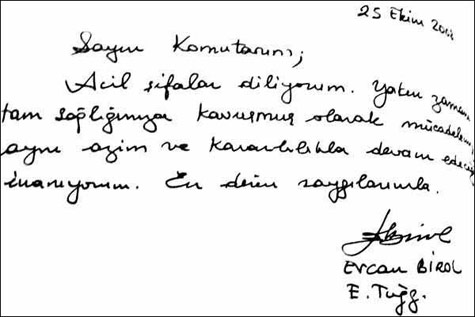 25 Ekim
Sayın Komutanım;
Acil şifalar diliyorum. Yakın zamanda
tam sağlığınıza kavuşmuş olarak
aynı azim ve kararlılıkla devam
inanıyorum. En derin saygılarımla.
Ercan BİROL
E. Tuğg.